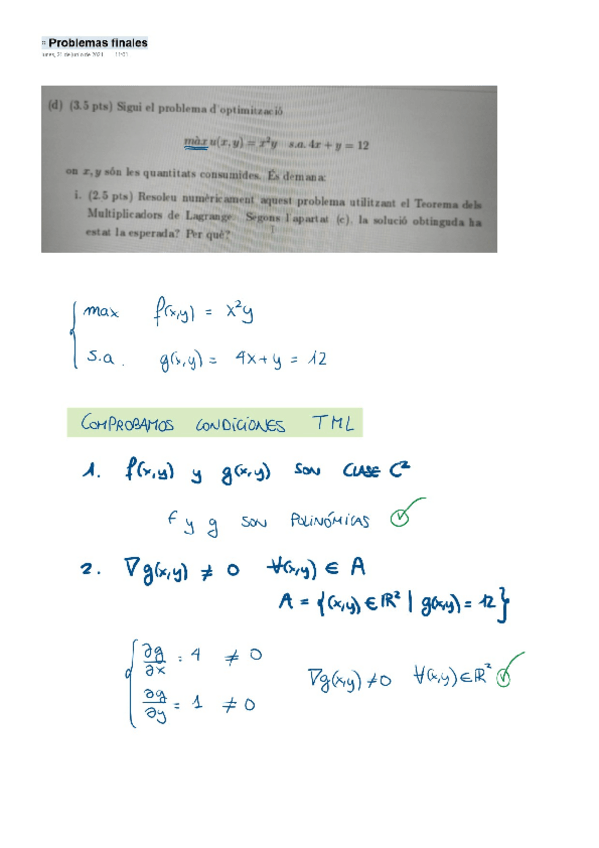 Problemas finales
(d) (3.5 pts) Sigui el problema d'optimització
màx u(x, y) = x²y s.a. 4x + y = 12
on x, y són les quantitats consumides. És demana:
i. (2.5 pts) Resoleu numèricament aquest problema utilitzant el Teorema dels
Multiplicadors de Lagrange. Segons l'apartat (c), la solució obtinguda ha
estat la esperada? Per què?
max f(x,y) = x²y
s.a. g(x,y) = 4x+y = 12
COMPROBAMOS CONDICIONES TML
1. f(x,y) y g(x,y) SON CLASE C²
F y g SON POLINÓMICAS
2. ∇g(x,y) ≠ 0 ∀(x,y) ∈ A
A = {(x,y) ∈ ℝ² | g(x,y) = 12}
∂g/∂x = 4 ≠ 0
∂g/∂y = 1 ≠ 0
∇g(x,y) ≠ 0 ∀(x,y) ∈ ℝ²